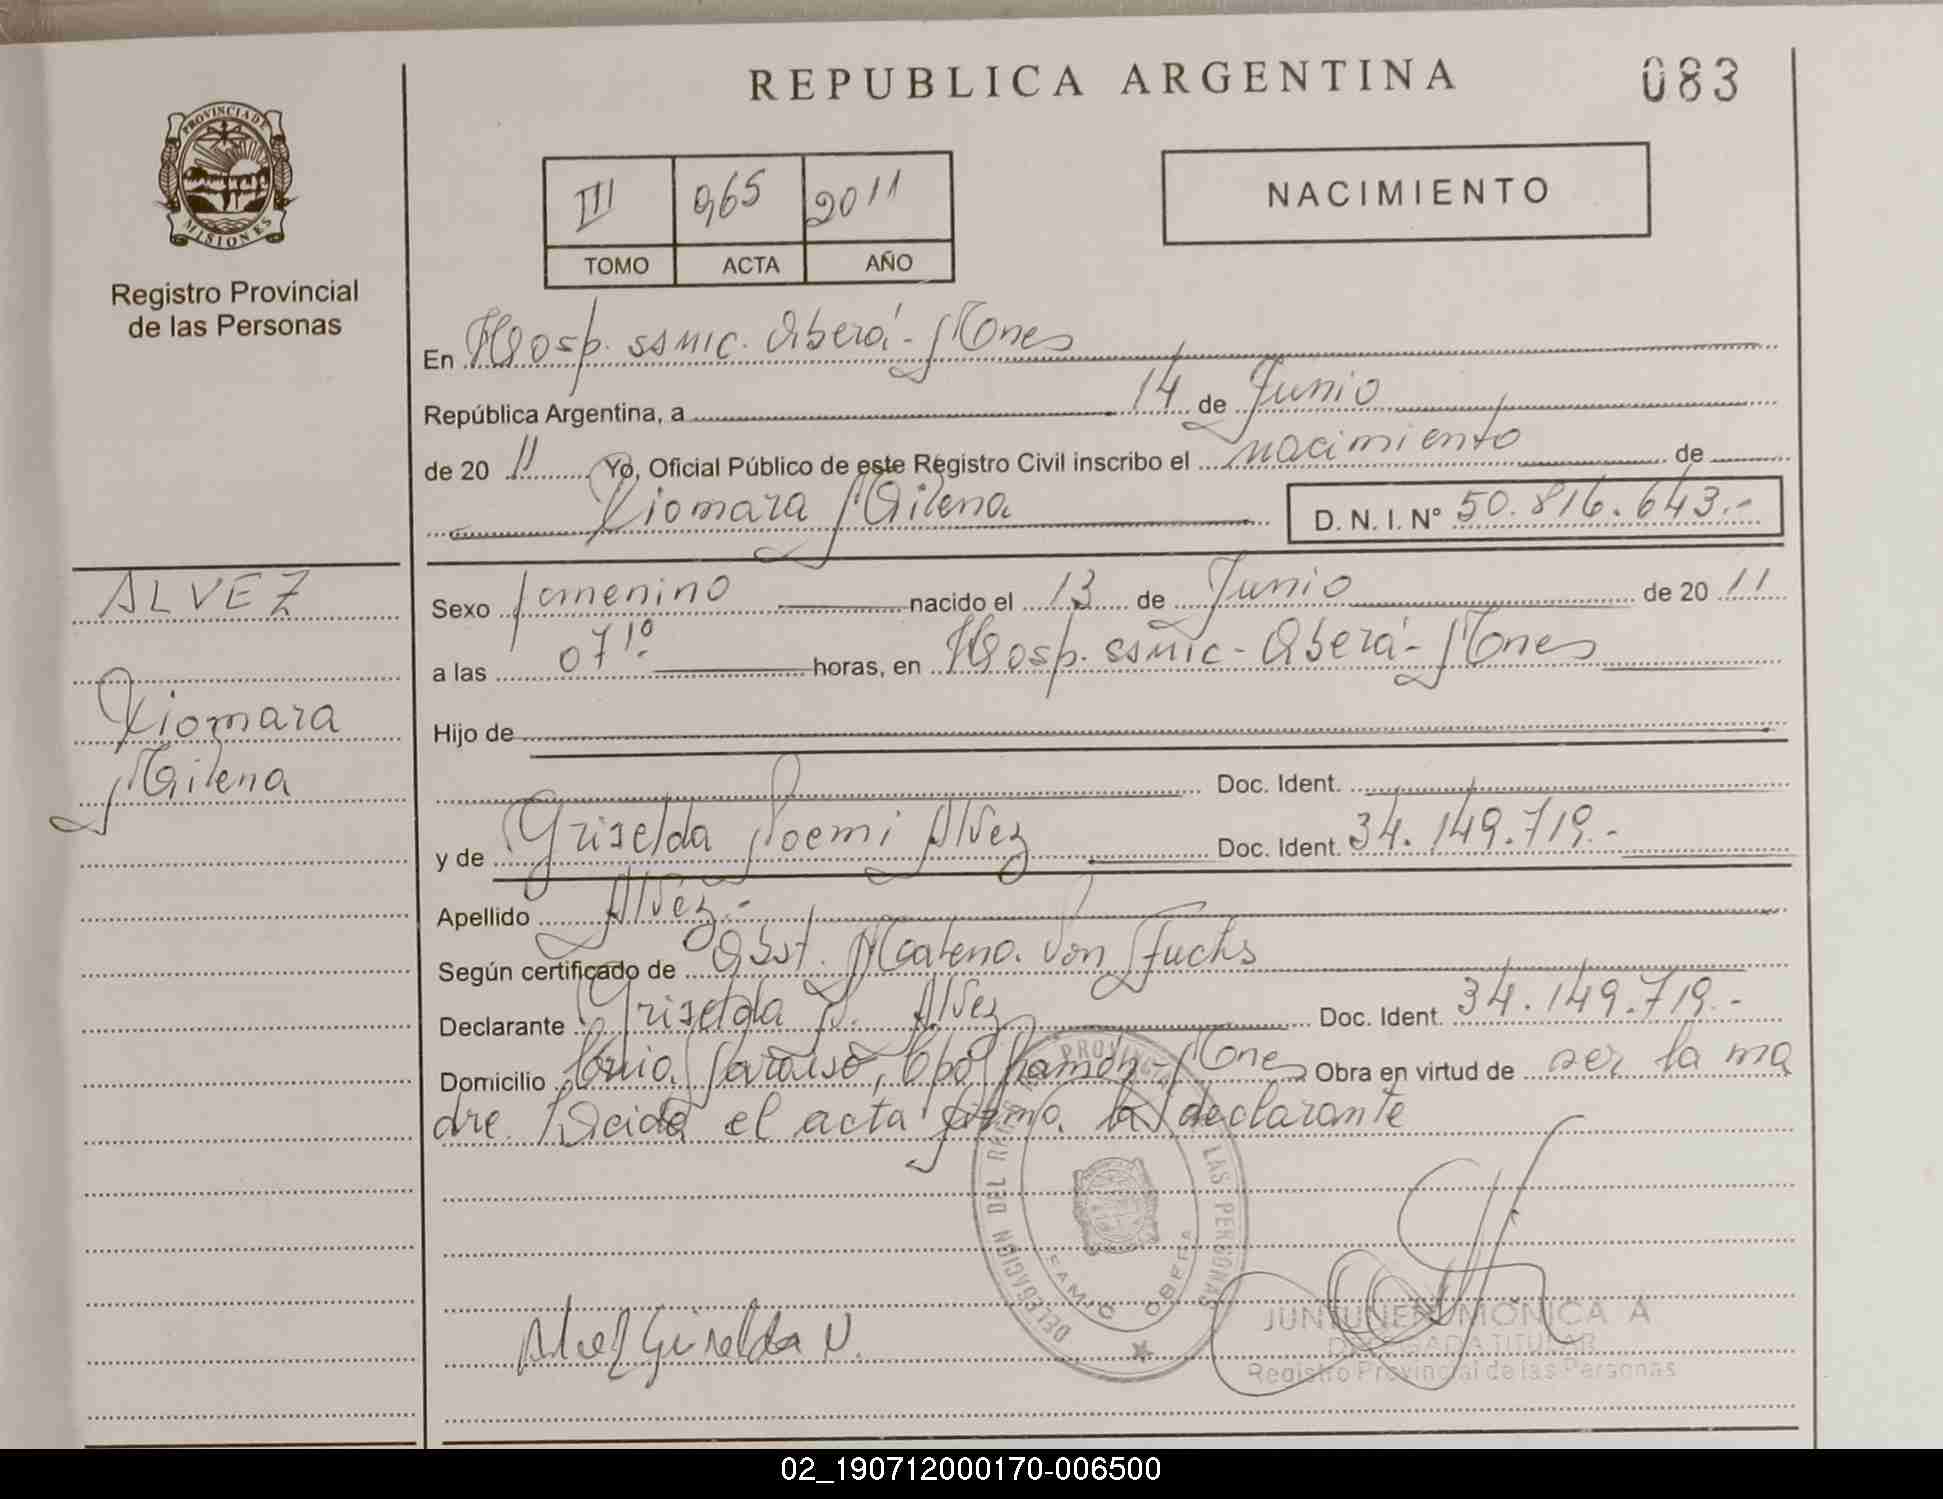 REPUBLICA ARGENTINA
083
PROVINCIA DE
MISIONES
Registro Provincial
de las Personas
III 965 2011
TOMO ACTA AÑO
NACIMIENTO
En Hosp. SAMIC. Oberá - Mones
República Argentina, a 14 de Junio
de 20 11 Yo, Oficial Público de este Registro Civil inscribo el nacimiento de
Xiomara Milena D. N. I. N° 50.816.643.-
ALVEZ
Xiomara
Milena
Sexo femenino nacido el 13 de Junio de 20 11
a las 07 10 horas, en Hosp. SAMIC - Oberá - Mones
Hijo de
Doc. Ident.
y de Griselda Noemi Alvez Doc. Ident. 34.149.719.-
Apellido Alvez.-
Según certificado de Obst. Von Fuchs
Declarante Griselda N. Alvez Doc. Ident. 34.149.719.-
Domicilio Paraiso, Cpo Ramón - Mones Obra en virtud de ser la ma
dre. Leida el acta firma la declarante
DELEGACION DEL PROVINCIAL LAS PERSONAS
SAMIC OBERA
Alvez Griselda N.
JUNTUNEN MONICA A
DELEGADA TITULAR
Registro Provincial de las Personas
02_190712000170-006500